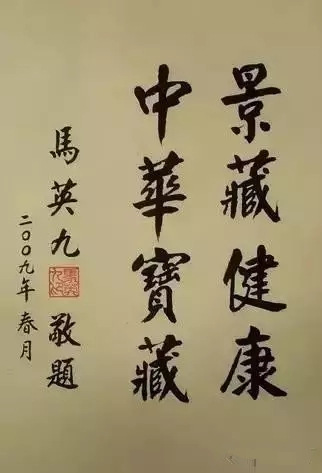 景藏健康
中華寶藏
馬英九 敬題
二〇〇九年 春月